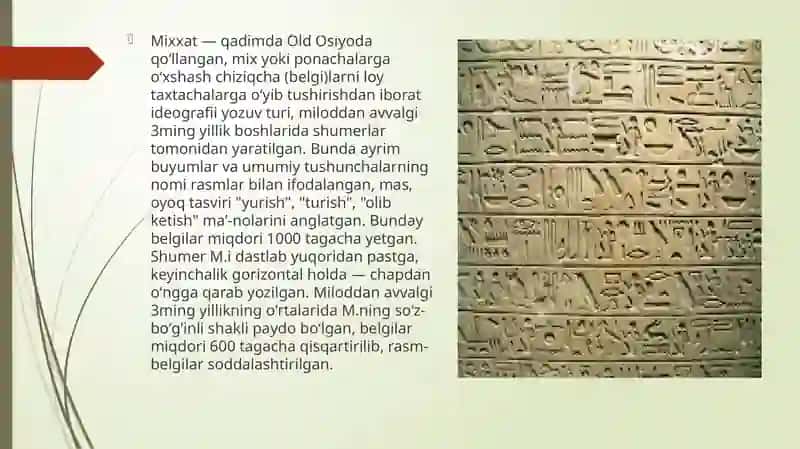 Mixxat — qadimda Old Osiyoda
qoʻllangan, mix yoki ponachalarga
oʻxshash chiziqcha (belgi)larni loy
taxtachalarga oʻyib tushirishdan iborat
ideografii yozuv turi, miloddan avvalgi
3ming yillik boshlarida shumerlar
tomonidan yaratilgan. Bunda ayrim
buyumlar va umumiy tushunchalarning
nomi rasmlar bilan ifodalangan, mas,
oyoq tasviri "yurish", "turish", "olib
ketish" maʼ-nolarini anglatgan. Bunday
belgilar miqdori 1000 tagacha yetgan.
Shumer M.i dastlab yuqoridan pastga,
keyinchalik gorizontal holda — chapdan
oʻngga qarab yozilgan. Miloddan avvalgi
3ming yillikning oʻrtalarida M.ning soʻz-
boʻgʻinli shakli paydo boʻlgan, belgilar
miqdori 600 tagacha qisqartirilib, rasm-
belgilar soddalashtirilgan.